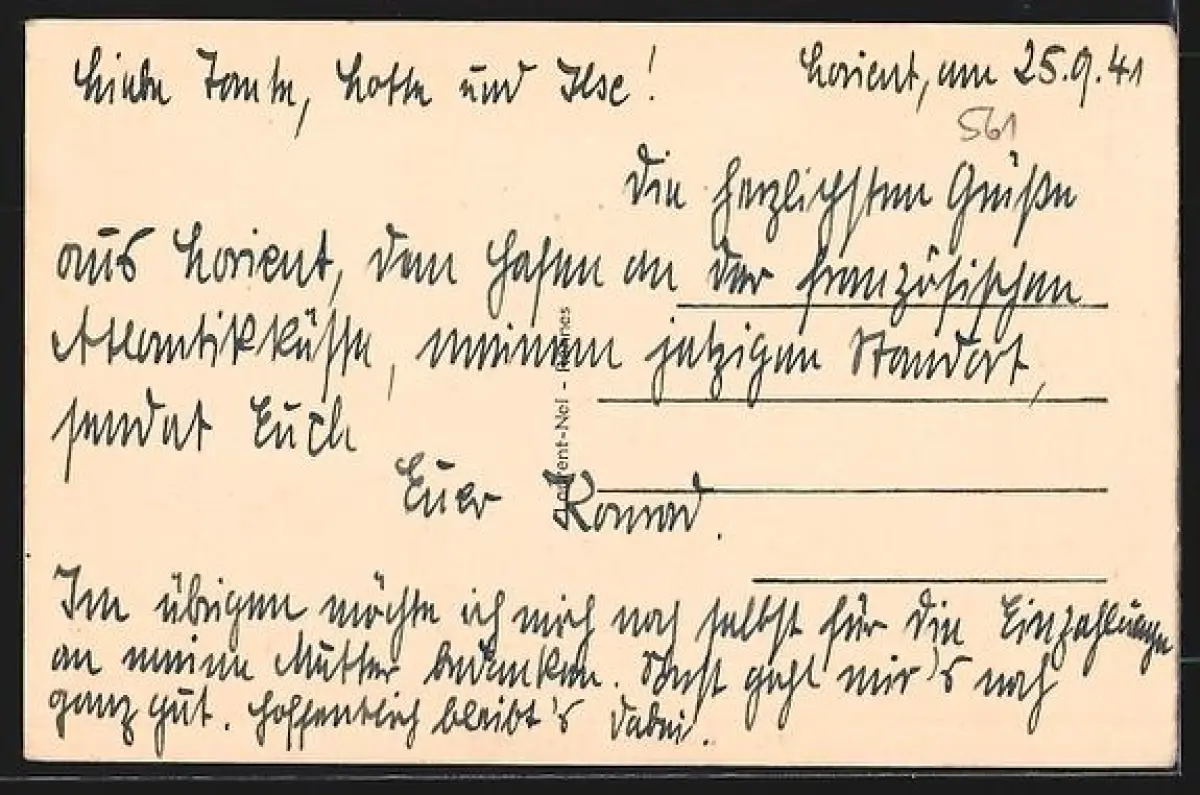 Liebe Tante, Lotte und Ilse!
Lorient, am 25.9.41
561
Die herzlichsten Grüße
aus Lorient, dem Hafen an der französischen
Atlantikküste, meinem jetzigen Standort,
sendet Euch
Euer Konrad.
Im übrigen möchte ich mich noch selbst für die Einzahlungen
an meine Mutter bedanken. Sonst geht mir's noch
ganz gut. Hoffentlich bleibt's dabei.
Laurent-Nel - Rennes